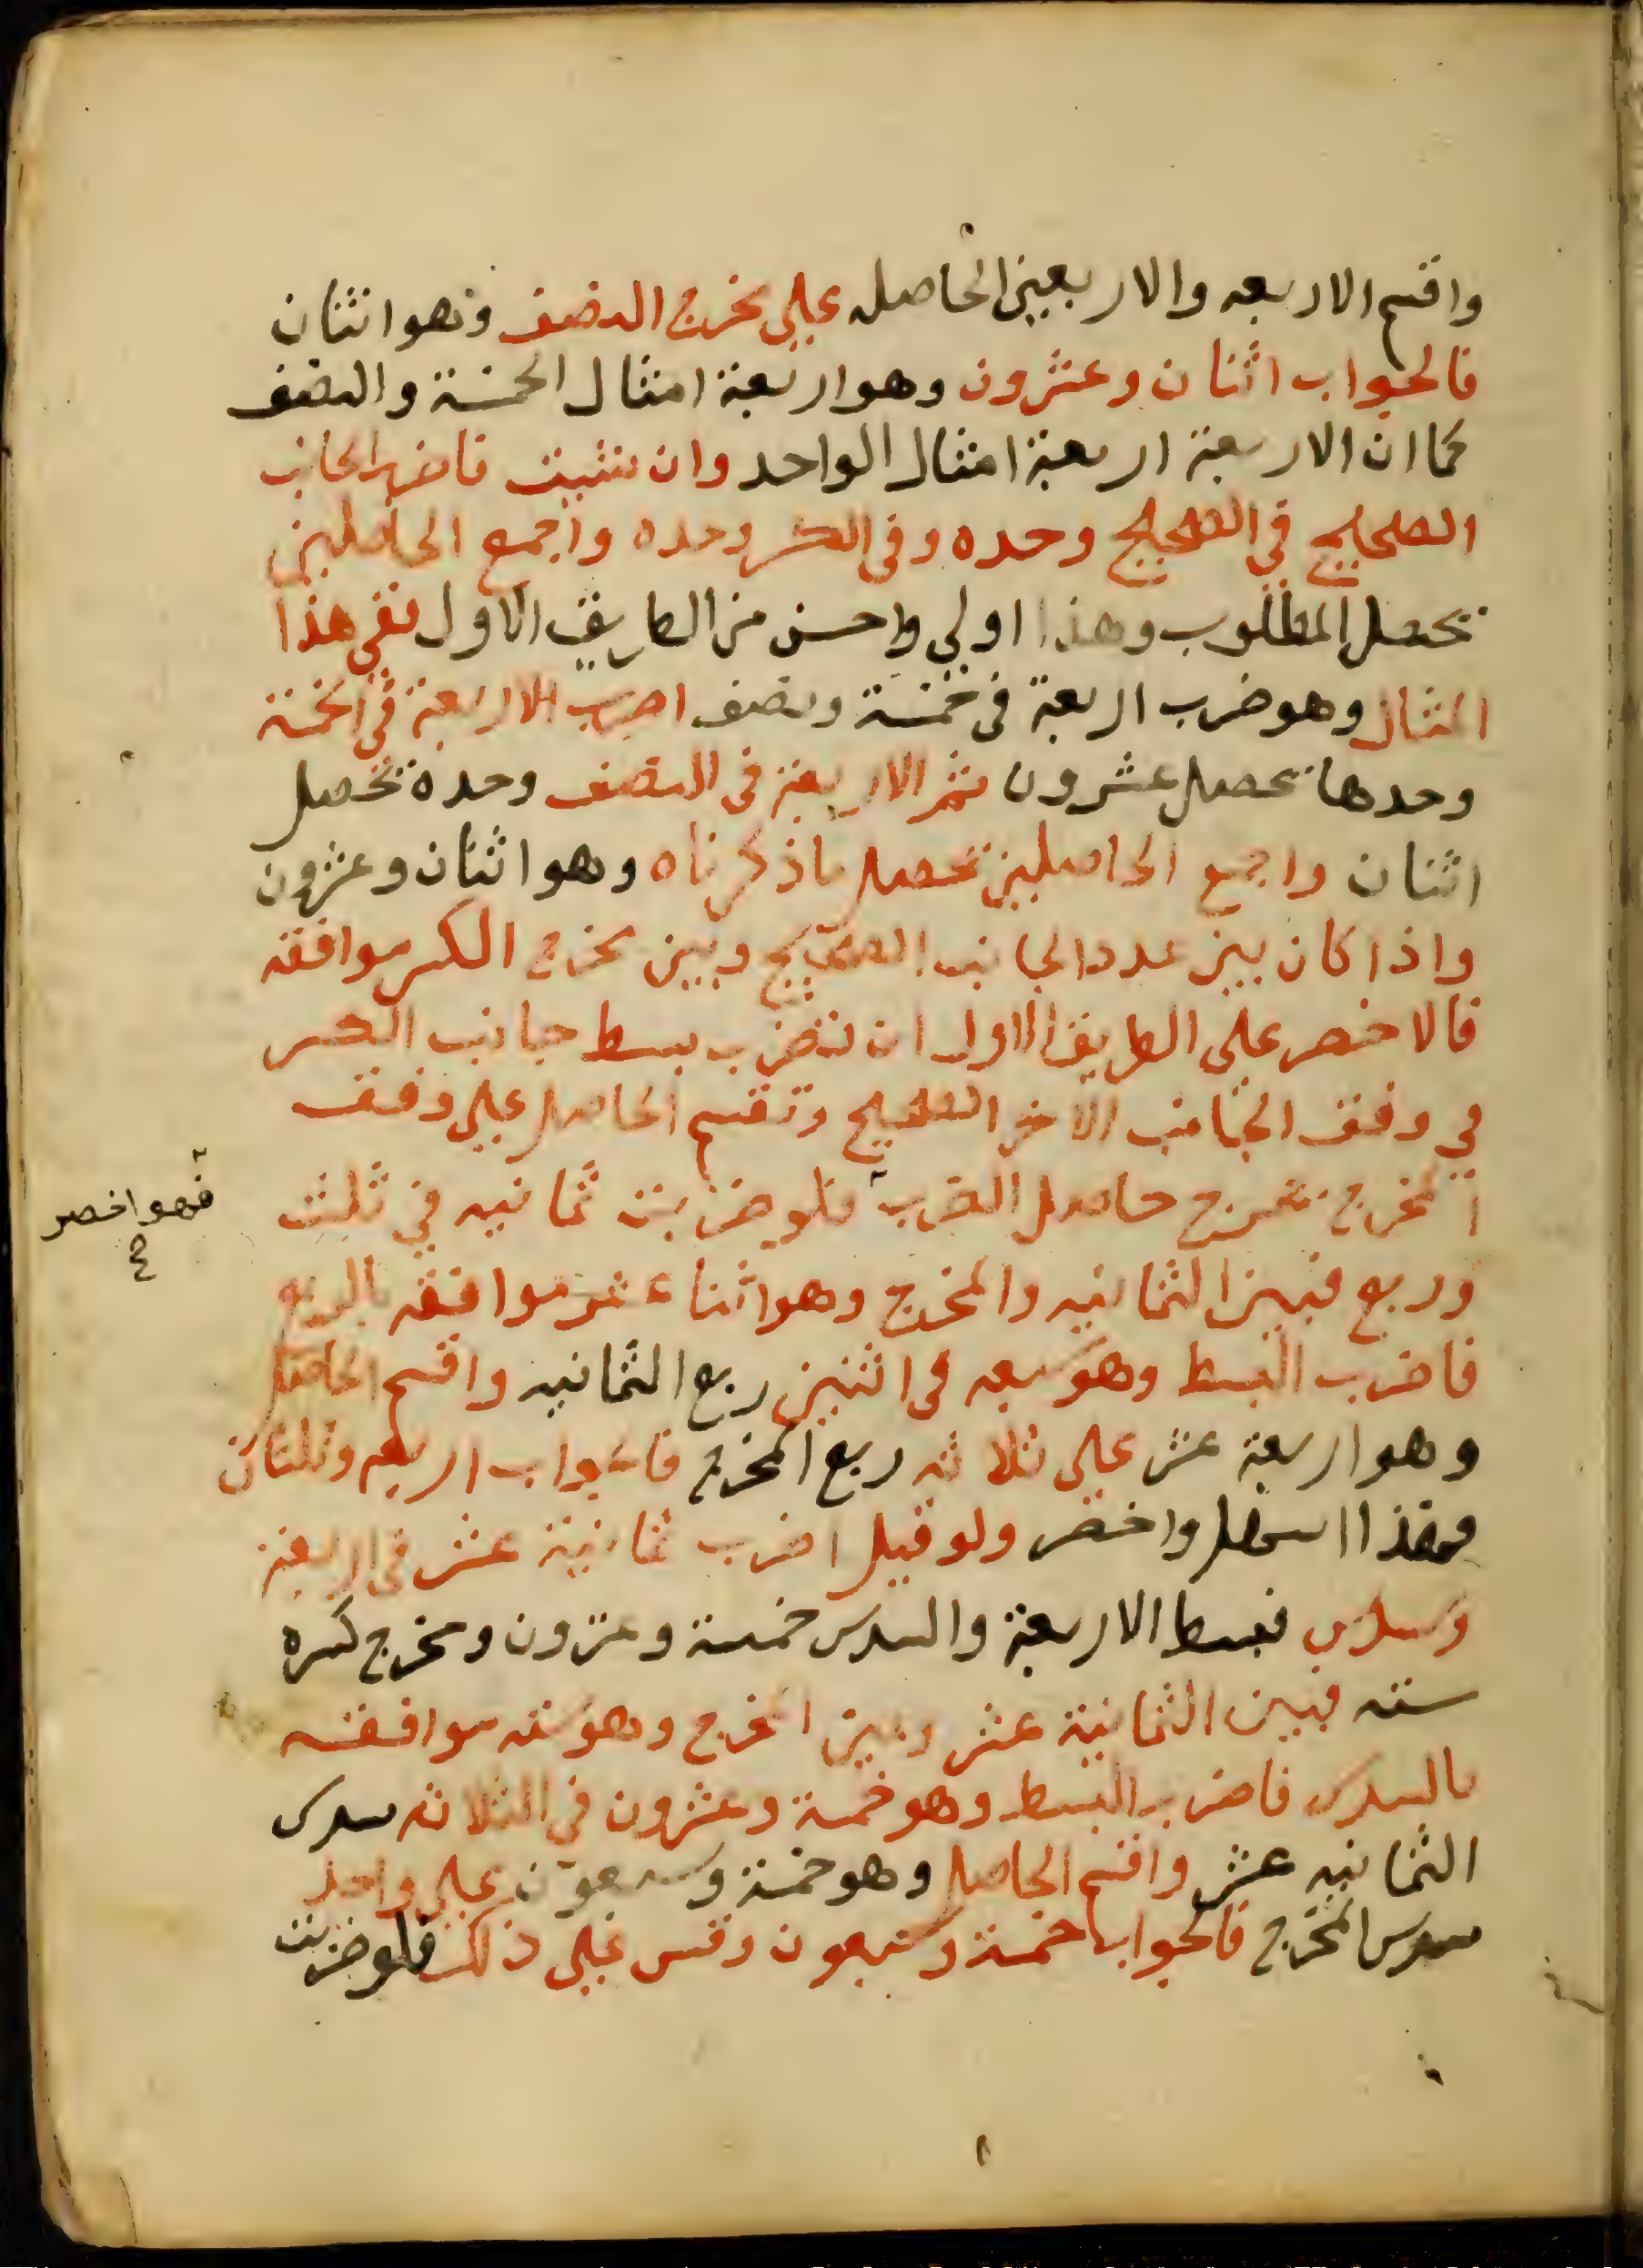 واقسم الاربعه والاربعين الحاصله على مخرج النصف وهو اثنان
فالجواب اثنان وعشرون وهو اربعة امثال الخمسة والنصف
كما ان الاربعة اربعة امثال الواحد وان شئت فاضرب الجانب
الصحيح في الصحيح وحده وفي الكسر وحده واجمع الحاصلين
يحصل المطلوب وهذا اولي واحسن من الطريق الاول ففي هذا
المثال وهو ضرب اربعة في خمسة ونصف اضرب الاربعة في الخمسة
وحدها يحصل عشرون ثم الاربعة في النصف وحده يحصل
اثنان واجمع الحاصلين يحصل ماذكرناه وهو اثنان وعشرون
واذا كان بين عدد الجانب الصحيح وبين مخرج الكسر موافقه
فالاخصر على الطريق الاول ان تضرب بسط جانب الكسر
في وفق الجانب الاخر الصحيح وتقسم الحاصل على وفق
المخرج يخرج حاصل الضرب فلو ضربت ثمانيه في ثلث
فهو اخصر
وربع فبين الثمانيه والمخرج وهو اثنا عشر موافقه بالربع
فاضرب البسط وهو سبعه في اثنين ربع الثمانيه واقسم الحاصل
وهو اربعة عشر على ثلاثه ربع المخرج فالجواب اربعه وثلثان
فهذا اسهل واخصر ولو قيل اضرب ثمانية عشر في اربعة
وسدس فبسط الاربعة والسدس خمسة وعشرون ومخرج كسره
سته فبين الثمانية عشر وبين المخرج وهو سته موافقه
بالسدس فاضرب البسط وهو خمسة وعشرون في الثلاثه سدس
الثمانيه عشر واقسم الحاصل وهو خمسة وسبعون على واحد
سدس المخرج فالجواب خمسة وسبعون وقس على ذلك فلو ضربت